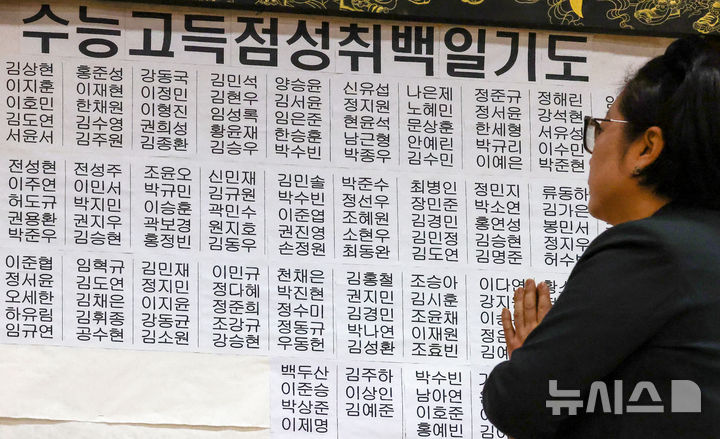 수능고득점성취백일기도
김상현 홍준성 강동국 김민석 양승윤 신유섭 나은제 정준규 정해린
이지훈 이재현 이정민 김현우 김서윤 정지원 노혜민 정서윤 강석현
이호민 한채원 이형진 임성록 임은준 현윤석 문상훈 한세형 서유성
김도연 김수영 권희성 황윤재 한승훈 남근형 안예린 박규리 이수민
서윤서 김주원 김종환 김승우 박수빈 박종우 김수민 이예은 박준현
전성현 전성주 조윤오 신민재 김민솔 박준수 최병인 정민지 류동하
이주연 이민서 박규민 김규원 박수빈 정선우 장민준 박소연 김가은
허도규 박지민 이승훈 곽민수 이준엽 조혜원 김경민 홍연성 봉민서
권용환 권지우 곽보경 원지호 권진영 소현우 김민정 김승현 정지우
박준우 김승현 홍정빈 김동우 손정원 최동완 김도연 김명준 허수
이준협 임혁규 김민재 이민규 천채은 김홍철 조승아 이다연
정서윤 김도연 정지민 정다혜 박진현 권지민 김시훈 강지
오세한 김채은 이지윤 정준희 정수미 김경민 조윤채
하유림 김휘종 강동윤 조강규 정동규 박나연 이재원
임규연 공수현 김소원 강승현 우동헌 김성환 조효빈
백두산 김주하 박수빈
이준승 이상인 남아연
박상준 김예준 이호준
이제명 홍예빈
뉴시스